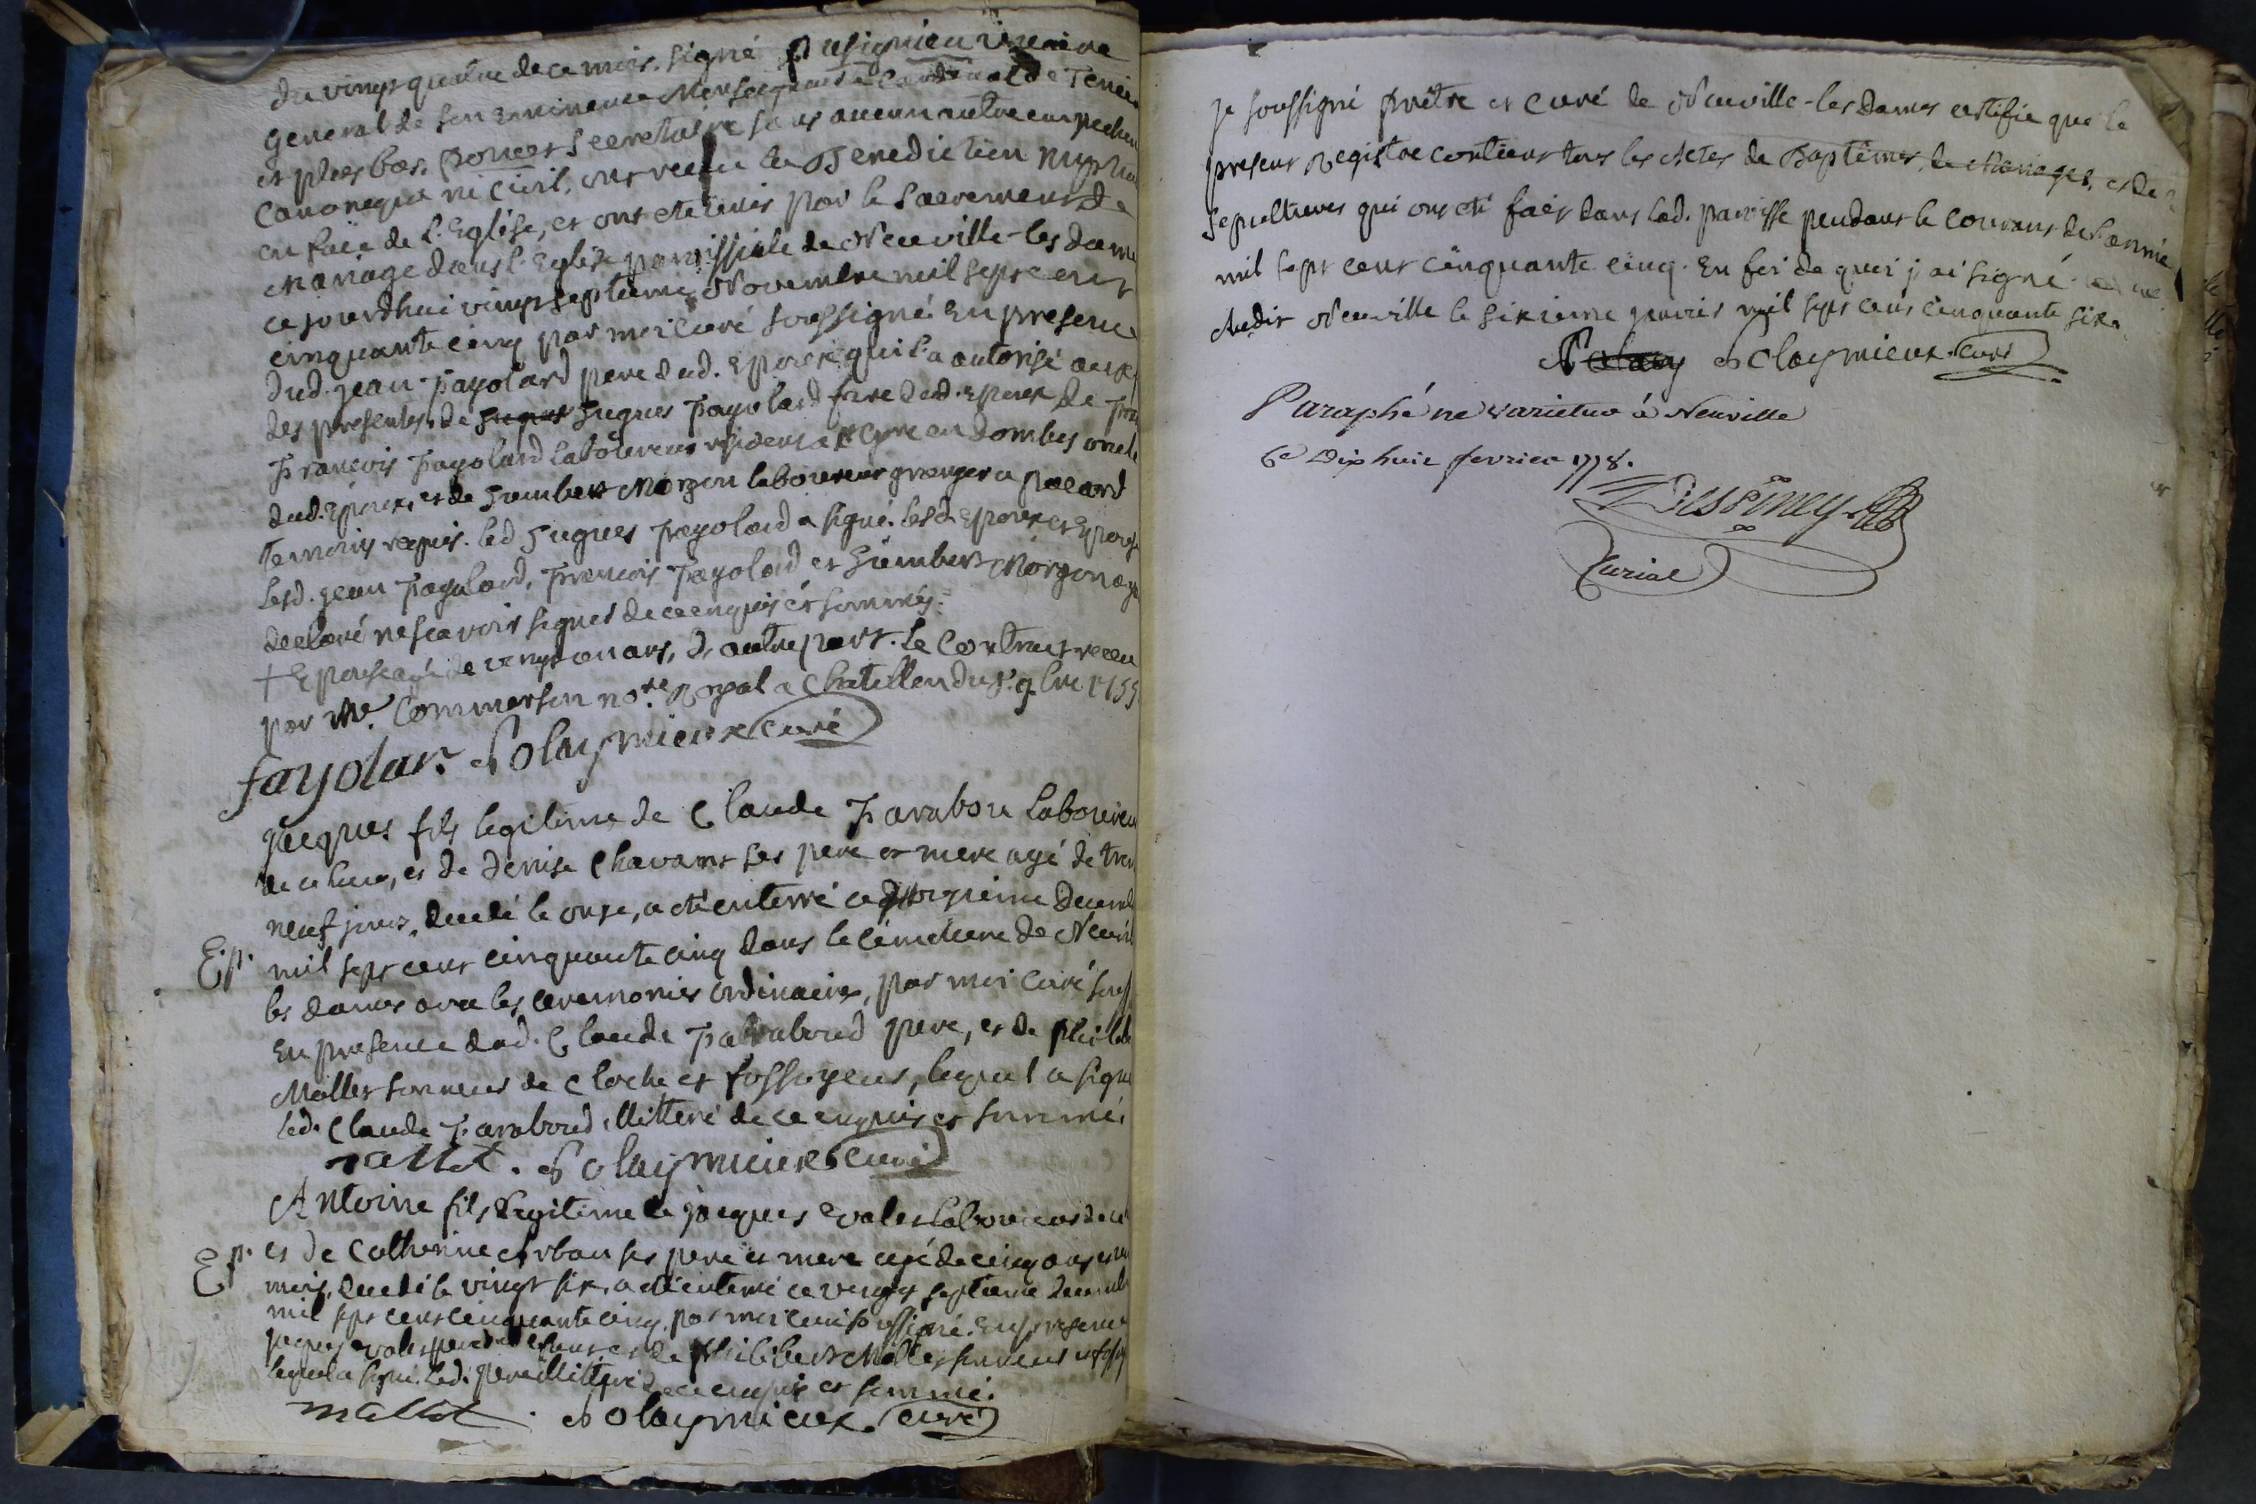 du vingt quatre de ce mois. signé pusignieu vicaire
general de son Eminence Monseigneur le Cardinal de Tencin
et plus bas. poncet Secretaire sans aucun autre empechem
Canonique ni civil, ont receu la Benediction nuptia
en face de l'Eglise, et ont eté unis par le sacrement de
Mariage dans l'Eglise paroissiale de Neuville-les dame
ce jourdhui vingt septieme Novembre mil sept cent
cinquante cinq par moi curé soussigné. En presence
dud. jean fayolard pere dud. Epoux qui l'a autorisé aux
des presentes. de Hugues fayolard frere dud. Epoux de
françois fayolard laboureur resident a en Dombes oncle
dud. Epoux, et de humbert Morgon laboureur granger a
temoins requis. led hugues fayolard a signé. lesd. Epoux et Epouse
lesd. jean fayolard, françois fayolard et humbert Morgon ay
declaré ne scavoir signer de ce enquis et sommés.
+ Epouse agé de vingt un ans, d'autre part. le contract receu
par Me. Commerson no.re Royal a Chatillon du 9bre 1755
fayolar. Solaymieux curé
jacques fils legitime de Claude farabou laboureu
de ce lieu, et de denise Chavant ses pere et mere agé de tren
neuf jours, decedé le onze, a eté enterré ce decemb
Ep. mil sept cent cinquante cinq dans le cimetiere de Neuvil
les dames avec les ceremonies ordinaires, par moi curé souss
En presence dud. Claude faraboud pere, et de phileb
Mallet sonneur de Cloche et fossoyeur, lequel a signé
led. Claude faraboud illitteré de ce enquis et sommé.
mallet. Solaymieux curé
Antoine fils legitime de jacques laboureur de ce
Ep. et de Catherine Arban ses pere et mere agé de cinq ans et
mois, decedé le vingt six, a eté enterré ce vingt septieme decemb
mil sept cent cinquante cinq, par moi curé soussigné. En presence
jacques pere et de philibert Mallet sonneur et fossoy
lequel a signé. led. pere illitteré de ce enquis et sommé.
mallet. Solaymieux. curé
Je soussigné prêtre et curé de Neuville-les Dames certifie que le
present Registre contient tous les Actes de Baptêmes, de Mariages, et de
sepultures qui ont eté faits dans lad. paroisse pendant le courant de l'année
mil sept cent cinquante cinq. En foi de quoi j'ai signé
Audit Neuville le sixieme janvier mil sept cent cinquante six.
Solaymieux. curé
Paraphé ne varietur à Neuville
Ce Dix huit fevrier 1778.
Curial